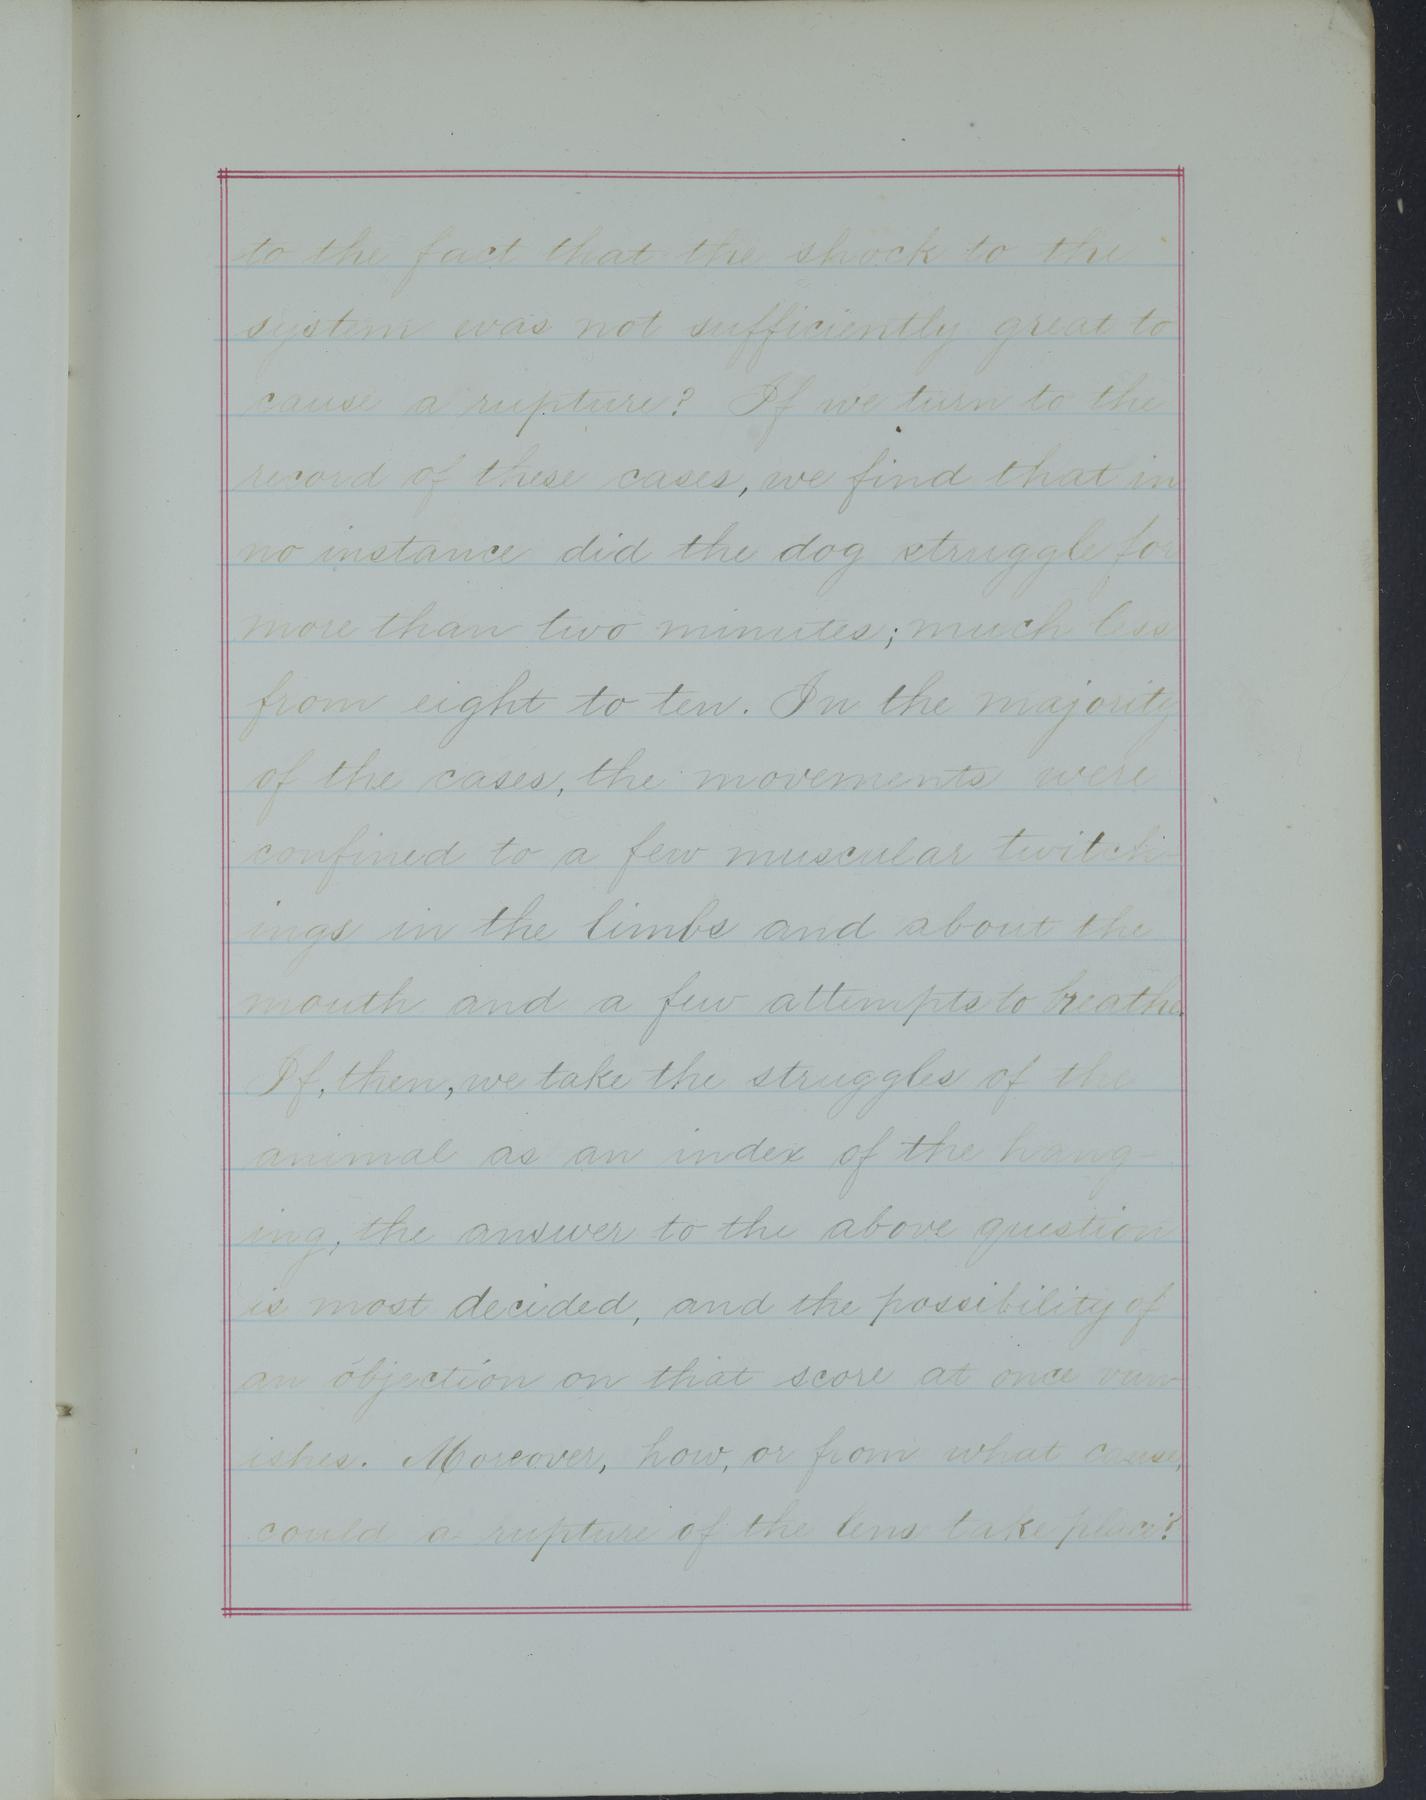 to the fact that the shock to the
system was not sufficiently great to
cause a rupture? If we turn to the
record of these cases, we find that in
no instance did the dog struggle for
more than two minutes; much less
from eight to ten. In the majority
of the cases, the movements were
confined to a few muscular twitch-
ings in the limbs and about the
mouth and a few attempts to breathe.
If, then, we take the struggles of the
animal as an index of the hang-
ing, the answer to the above question
is most decided, and the possibility of
an objection on that score at once van-
ishes. Moreover, how, or from what cause,
could a rupture of the lens take place?